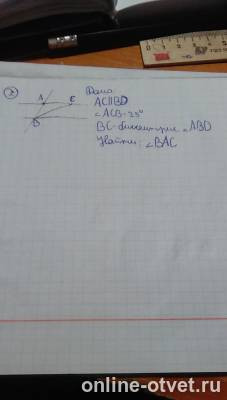 2
Дано:
A C AC||BD
∠ACB=25°
B BC-биссектриса ∠ABD
Найти: ∠BAC
online-otvet.ru